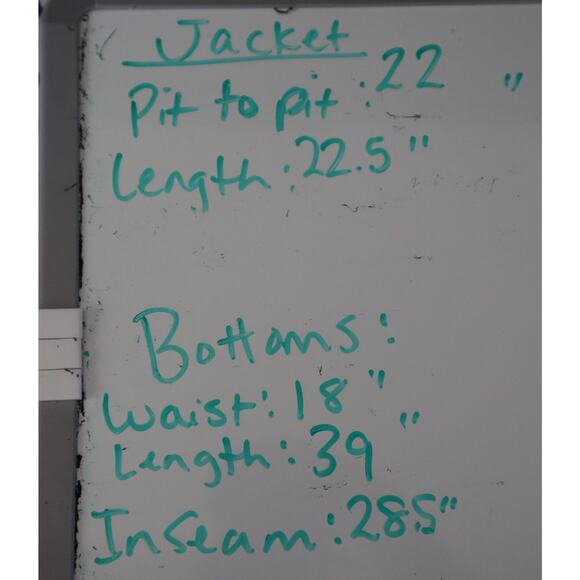 Jacket
Pit to pit: 22 "
Length: 22.5"
Bottoms:
Waist: 18"
Length: 39"
Inseam: 28.5"